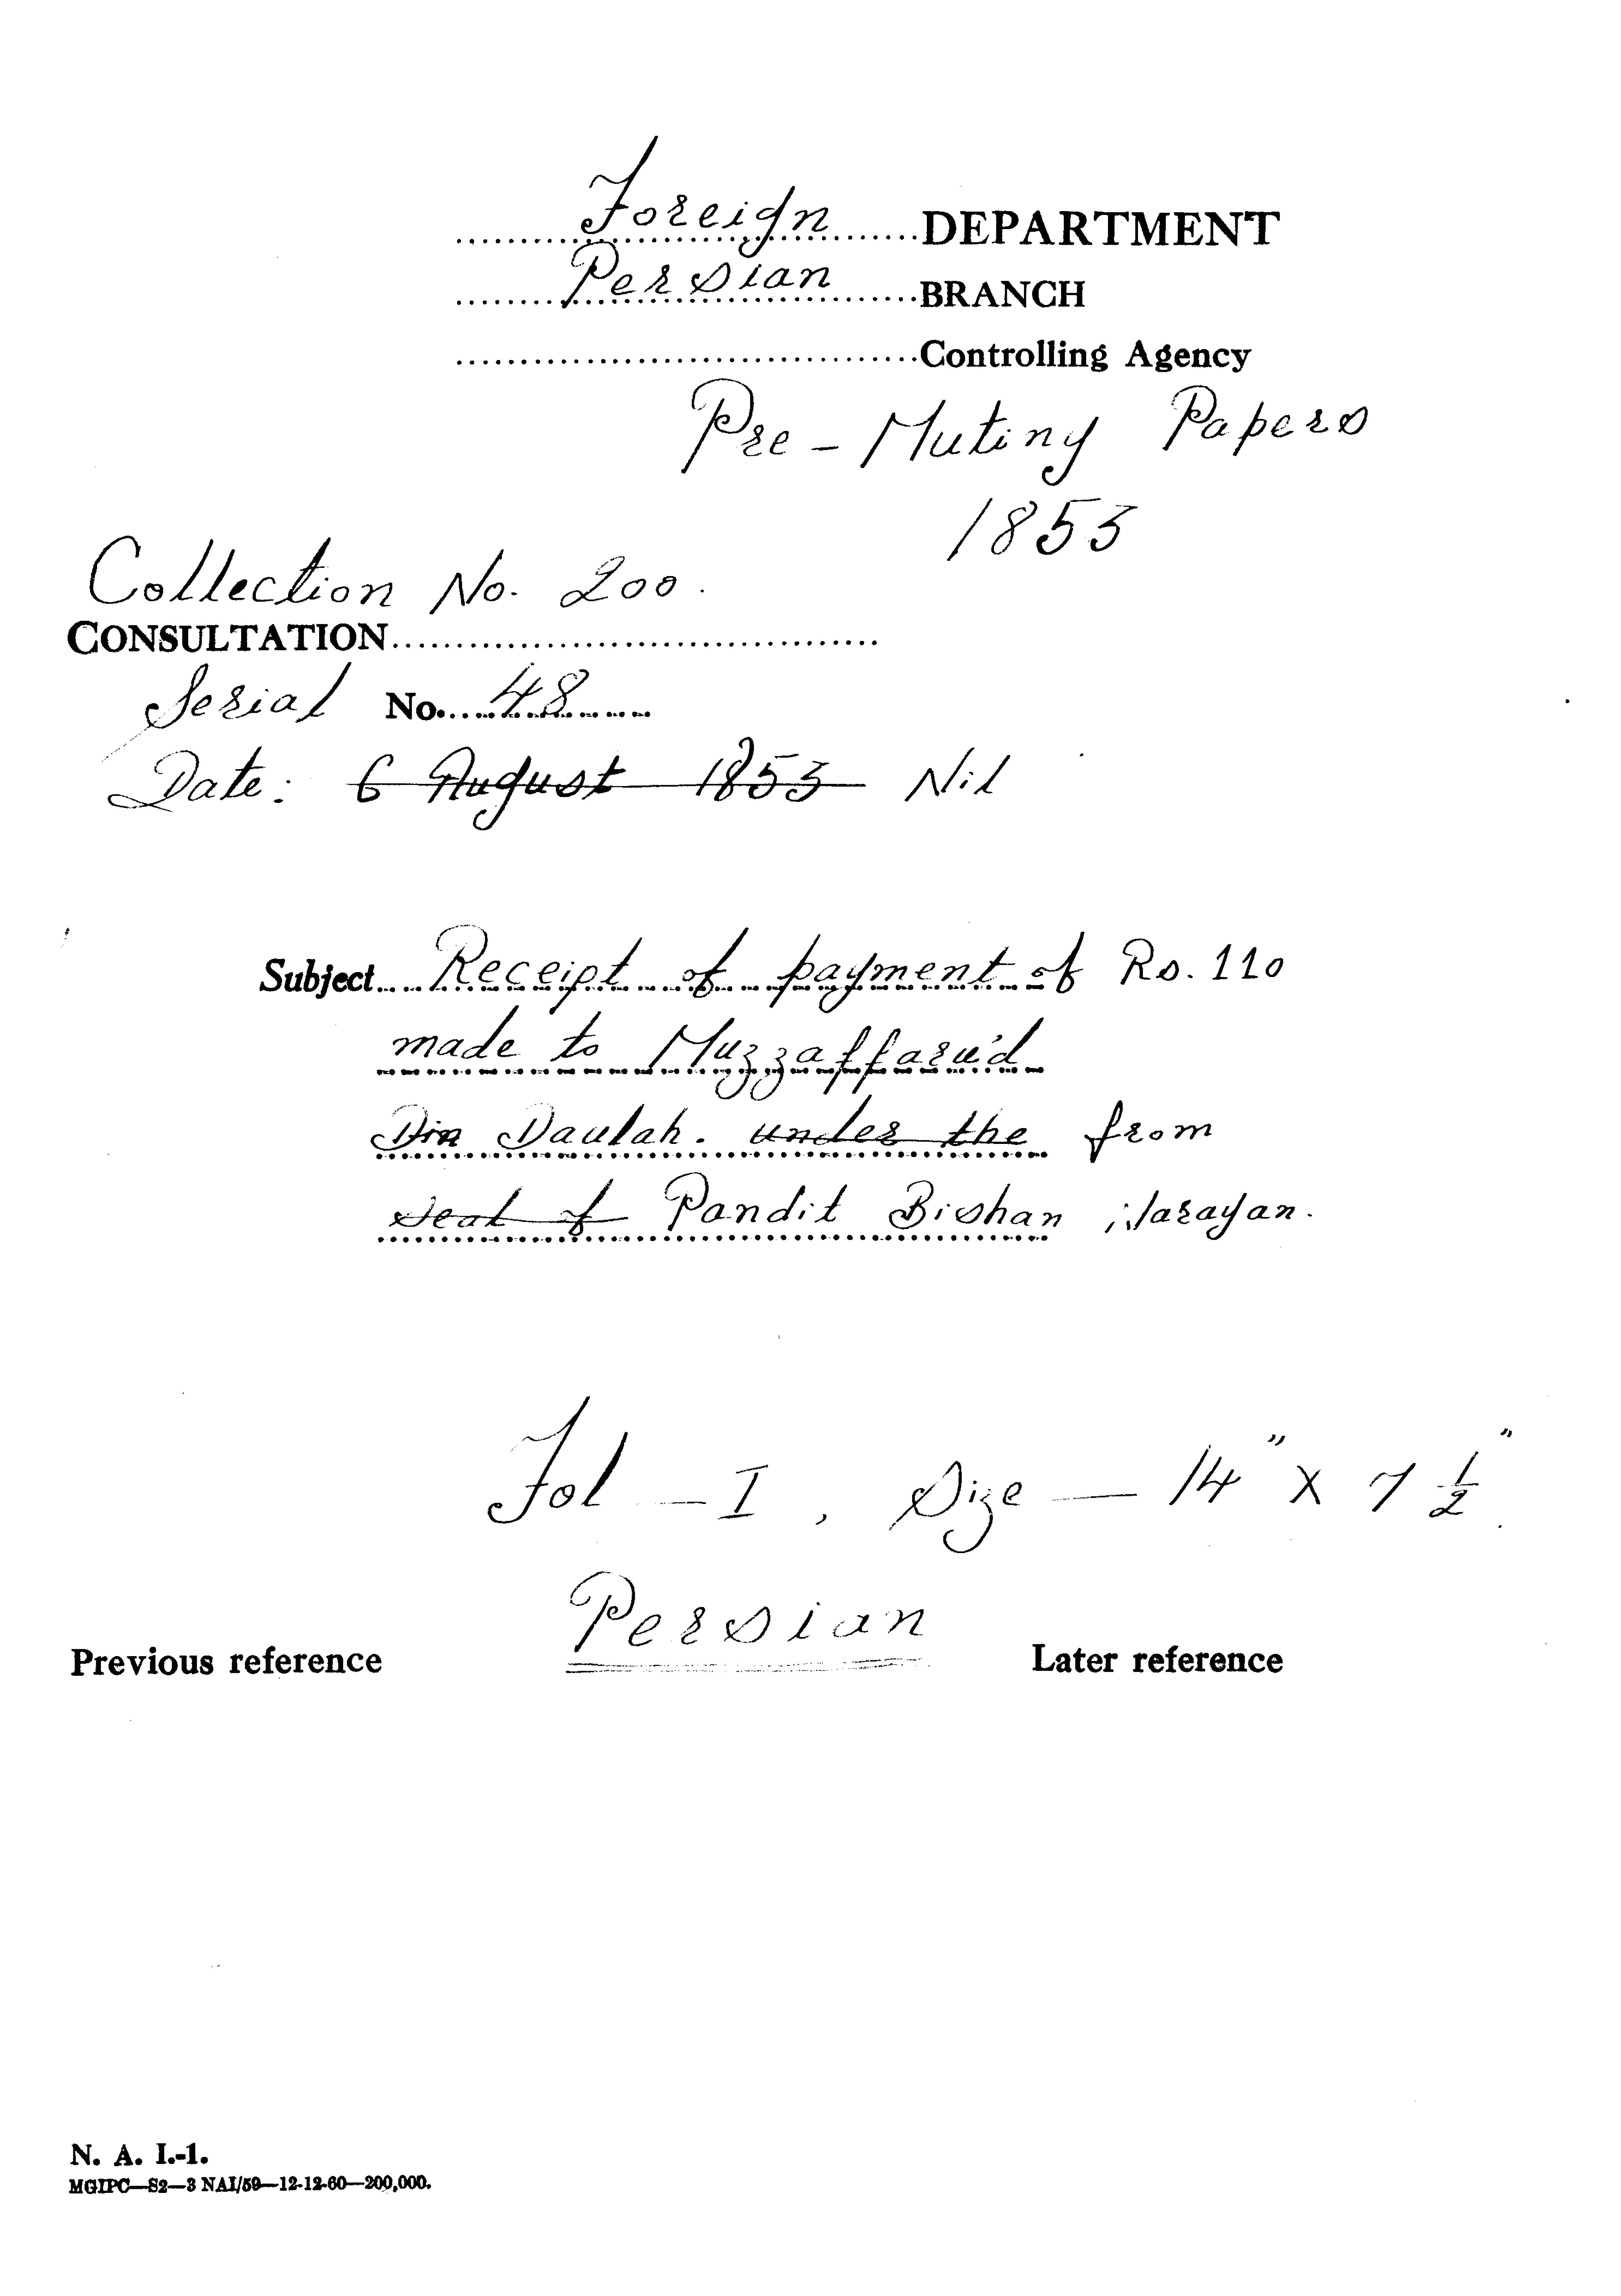 Foreign DEPARTMENT
Persian BRANCH
Controlling Agency
Pre - Mutiny Papers
1853
Collection No. 200.
CONSULTATION
Serial No. 48
Date: 6 August 1853 Nil
Subject Receipt of payment of Rs. 110
made to Muzzaffaru'd
Din Daulah. under the from
seal of Pandit Bishan Narayan.
Fol - I, Size - 14" X 7 1/2"
Persian
Previous reference Later reference
N. A. I.-1.
MGIPC—S2—3 NAI/59—12-12-60—200,000.